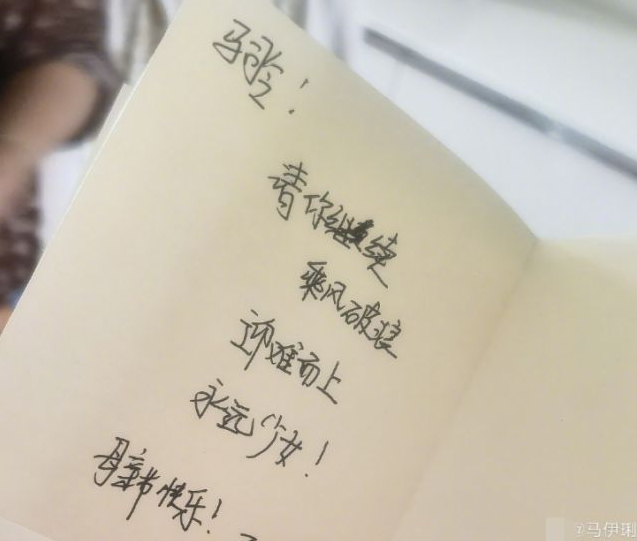 马司令！
请你继续
乘风破浪
迎难而上
永远少女！
母亲节快乐！
@马伊琍